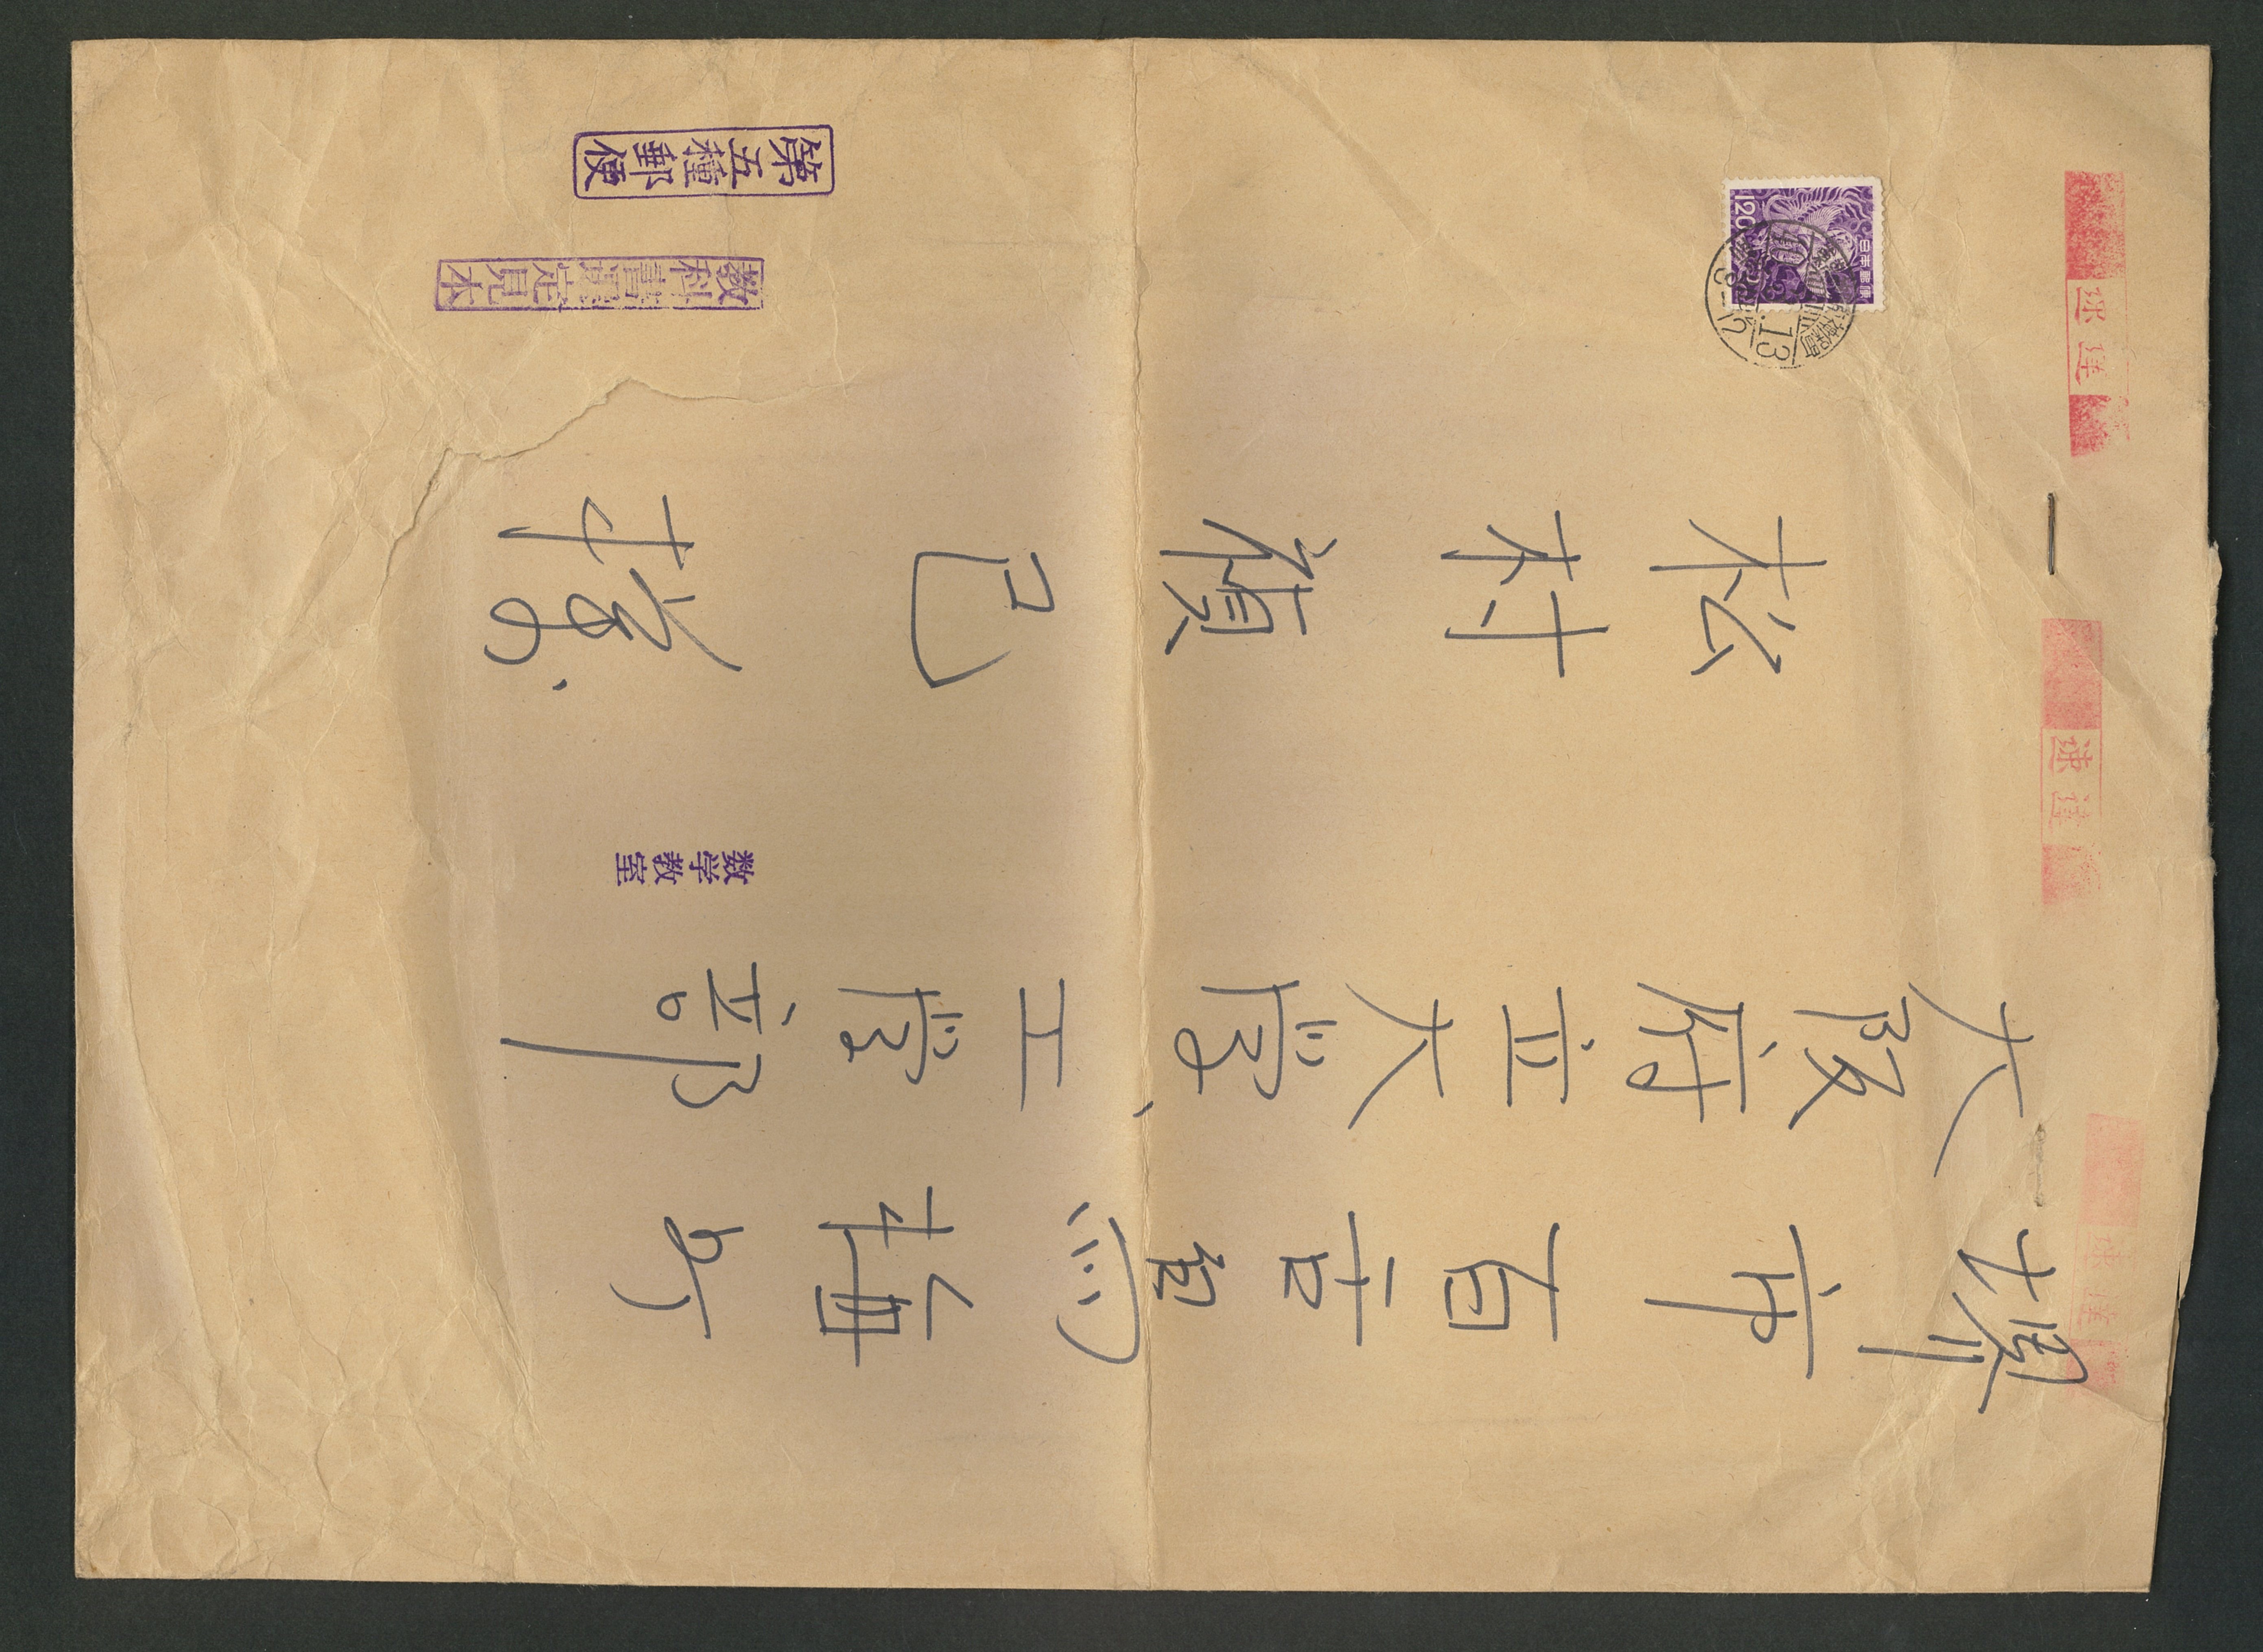 速達
速達
速達
堺市百舌鳥梅町
大阪府立大学、工学部
数学教室
松村禎己様
教科書選定見本
第五種郵便
日本郵便
120
8-12